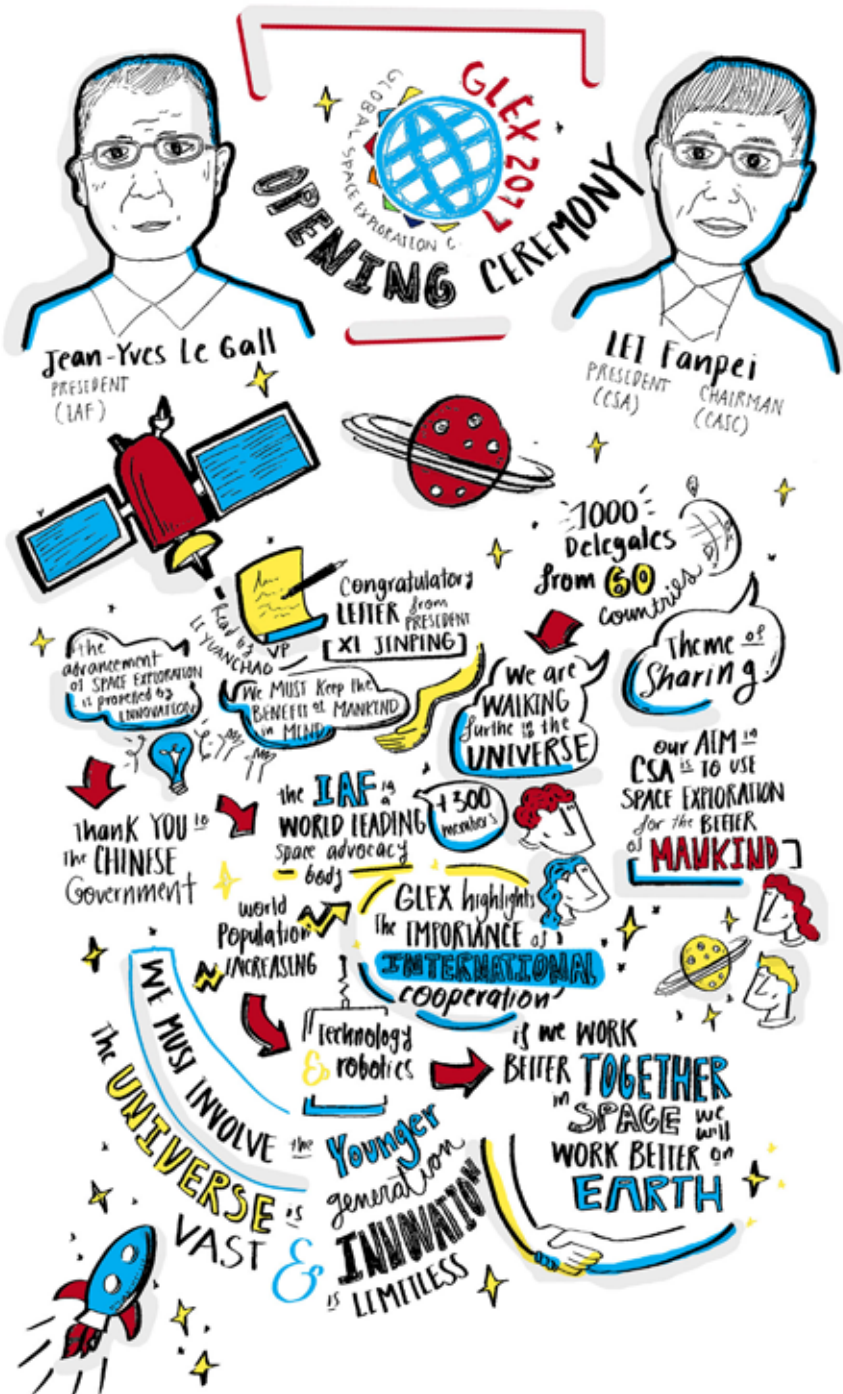 GLEX 2017
GLOBAL SPACE EXPLORATION C.
OPENING CEREMONY
Jean-Yves Le Gall
PRESIDENT
(IAF)
LEI Fanpei
PRESIDENT
(CSA)
CHAIRMAN
(CASC)
1000
Delegates
from 60
countries
Congratulatory
LETTER from
PRESIDENT
XI JINPING
Read by
VP
LI YUANCHAO
the
advancement
of SPACE EXPLORATION
is propelled by
INNOVATION
We MUST Keep the
BENEFIT of MANKIND
in MIND
We are
WALKING
furthe in to the
UNIVERSE
Theme of
Sharing
our AIM in
CSA is TO USE
SPACE EXPLORATION
for the BETTER
of MANKIND
THANK YOU to
The CHINESE
Government
the IAF is a
WORLD LEADING
space advocacy
body
+300
members
GLEX highlights
The IMPORTANCE of
INTERNATIONAL
cooperation
world
Population
INCREASING
Technology
& robotics
if we WORK
BETTER TOGETHER
in SPACE we
will
WORK BETTER on
EARTH
WE MUST INVOLVE the Younger
generation
The UNIVERSE is
VAST
& INNOVATION
is LIMITLESS